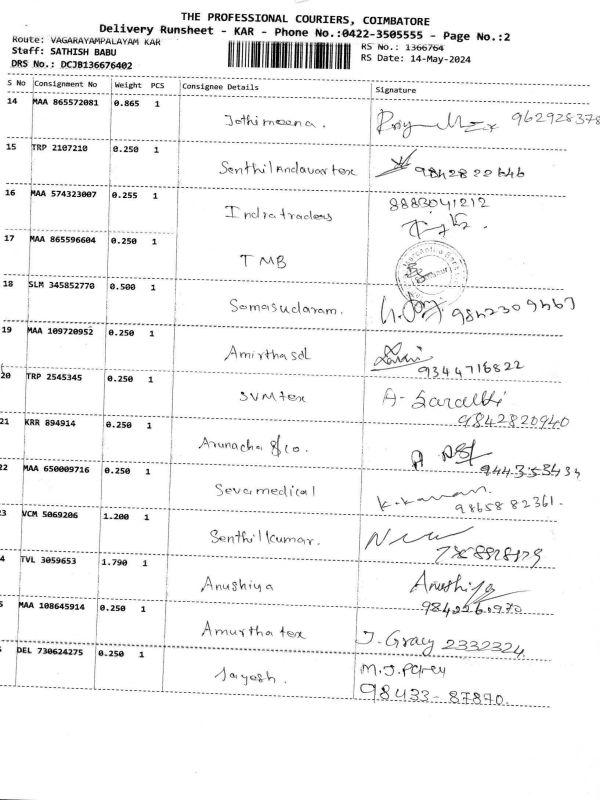 THE PROFESSIONAL COURIERS, COIMBATORE
Delivery Runsheet - KAR - Phone No.:0422-3505555 - Page No.:2
Route: VAGARAYAMPALAYAM KAR
Staff: SATHISH BABU
DRS No.: DCJB136676402
RS No.: 1366764
RS Date: 14-May-2024
S No Consignment No Weight PCS Consignee Details Signature
14 MAA 865572081 0.865 1 Jothimeena.
15 TRP 2107210 0.250 1 Senthilandavartex 9842820646
16 MAA 574323007 0.255 1 Indratraders 8883041212
17 MAA 865596604 0.250 1 TMB
18 SLM 345852770 0.500 1 Somasudaram. 9842309467
19 MAA 109720952 0.250 1 Amirthasdl 9344716822
20 TRP 2545345 0.250 1 SVMtex A- Sarathi 9842820940
21 KRR 894914 0.250 1 Arunacha & co.
22 MAA 650009716 0.250 1 Sevamedical K.Kannan. 9865882361.
23 VCM 5069206 1.200 1 Senthilkumar.
4 TVL 3059653 1.790 1 Anushiya Anushiya
MAA 108645914 0.250 1 Amurthatex J. Gracy 2332324
DEL 730624275 0.250 1 Jayesh. M.J.Parey 98433-87870.